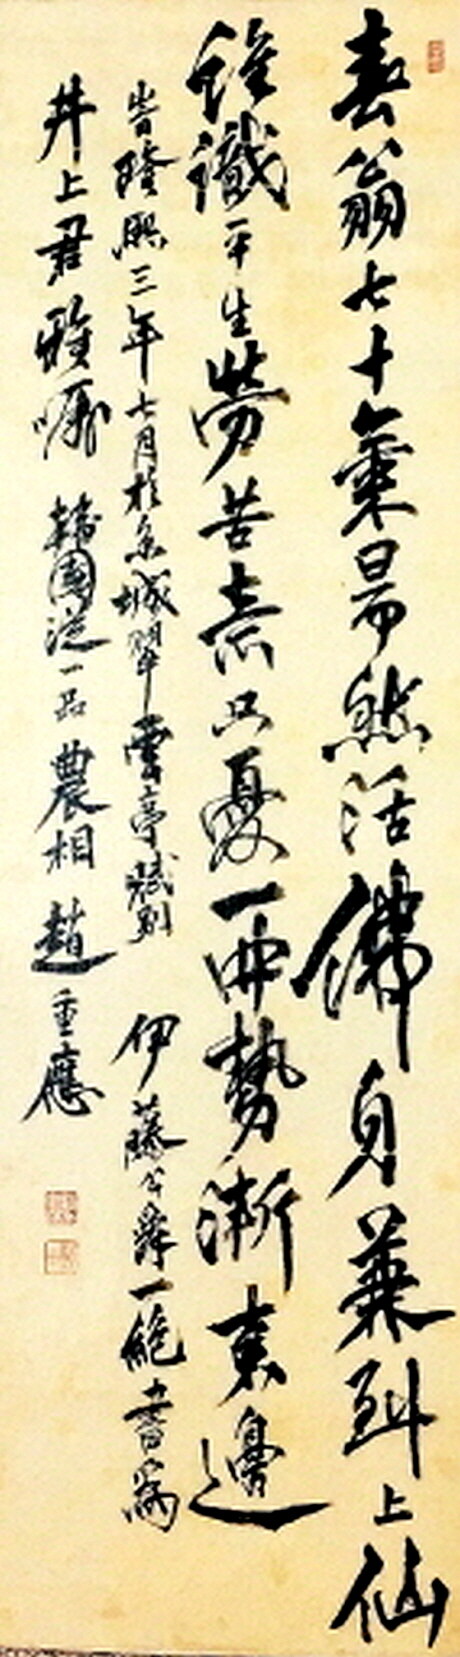 春翁七十氣昂然活佛身兼到上仙
誰識平生勞苦意只憂西勢漸東邊
峕隆熙三年七月於京城翠雲亭賦別 伊藤公爵一絶書為
井上君雅嘱 韓國從一品農相趙重應